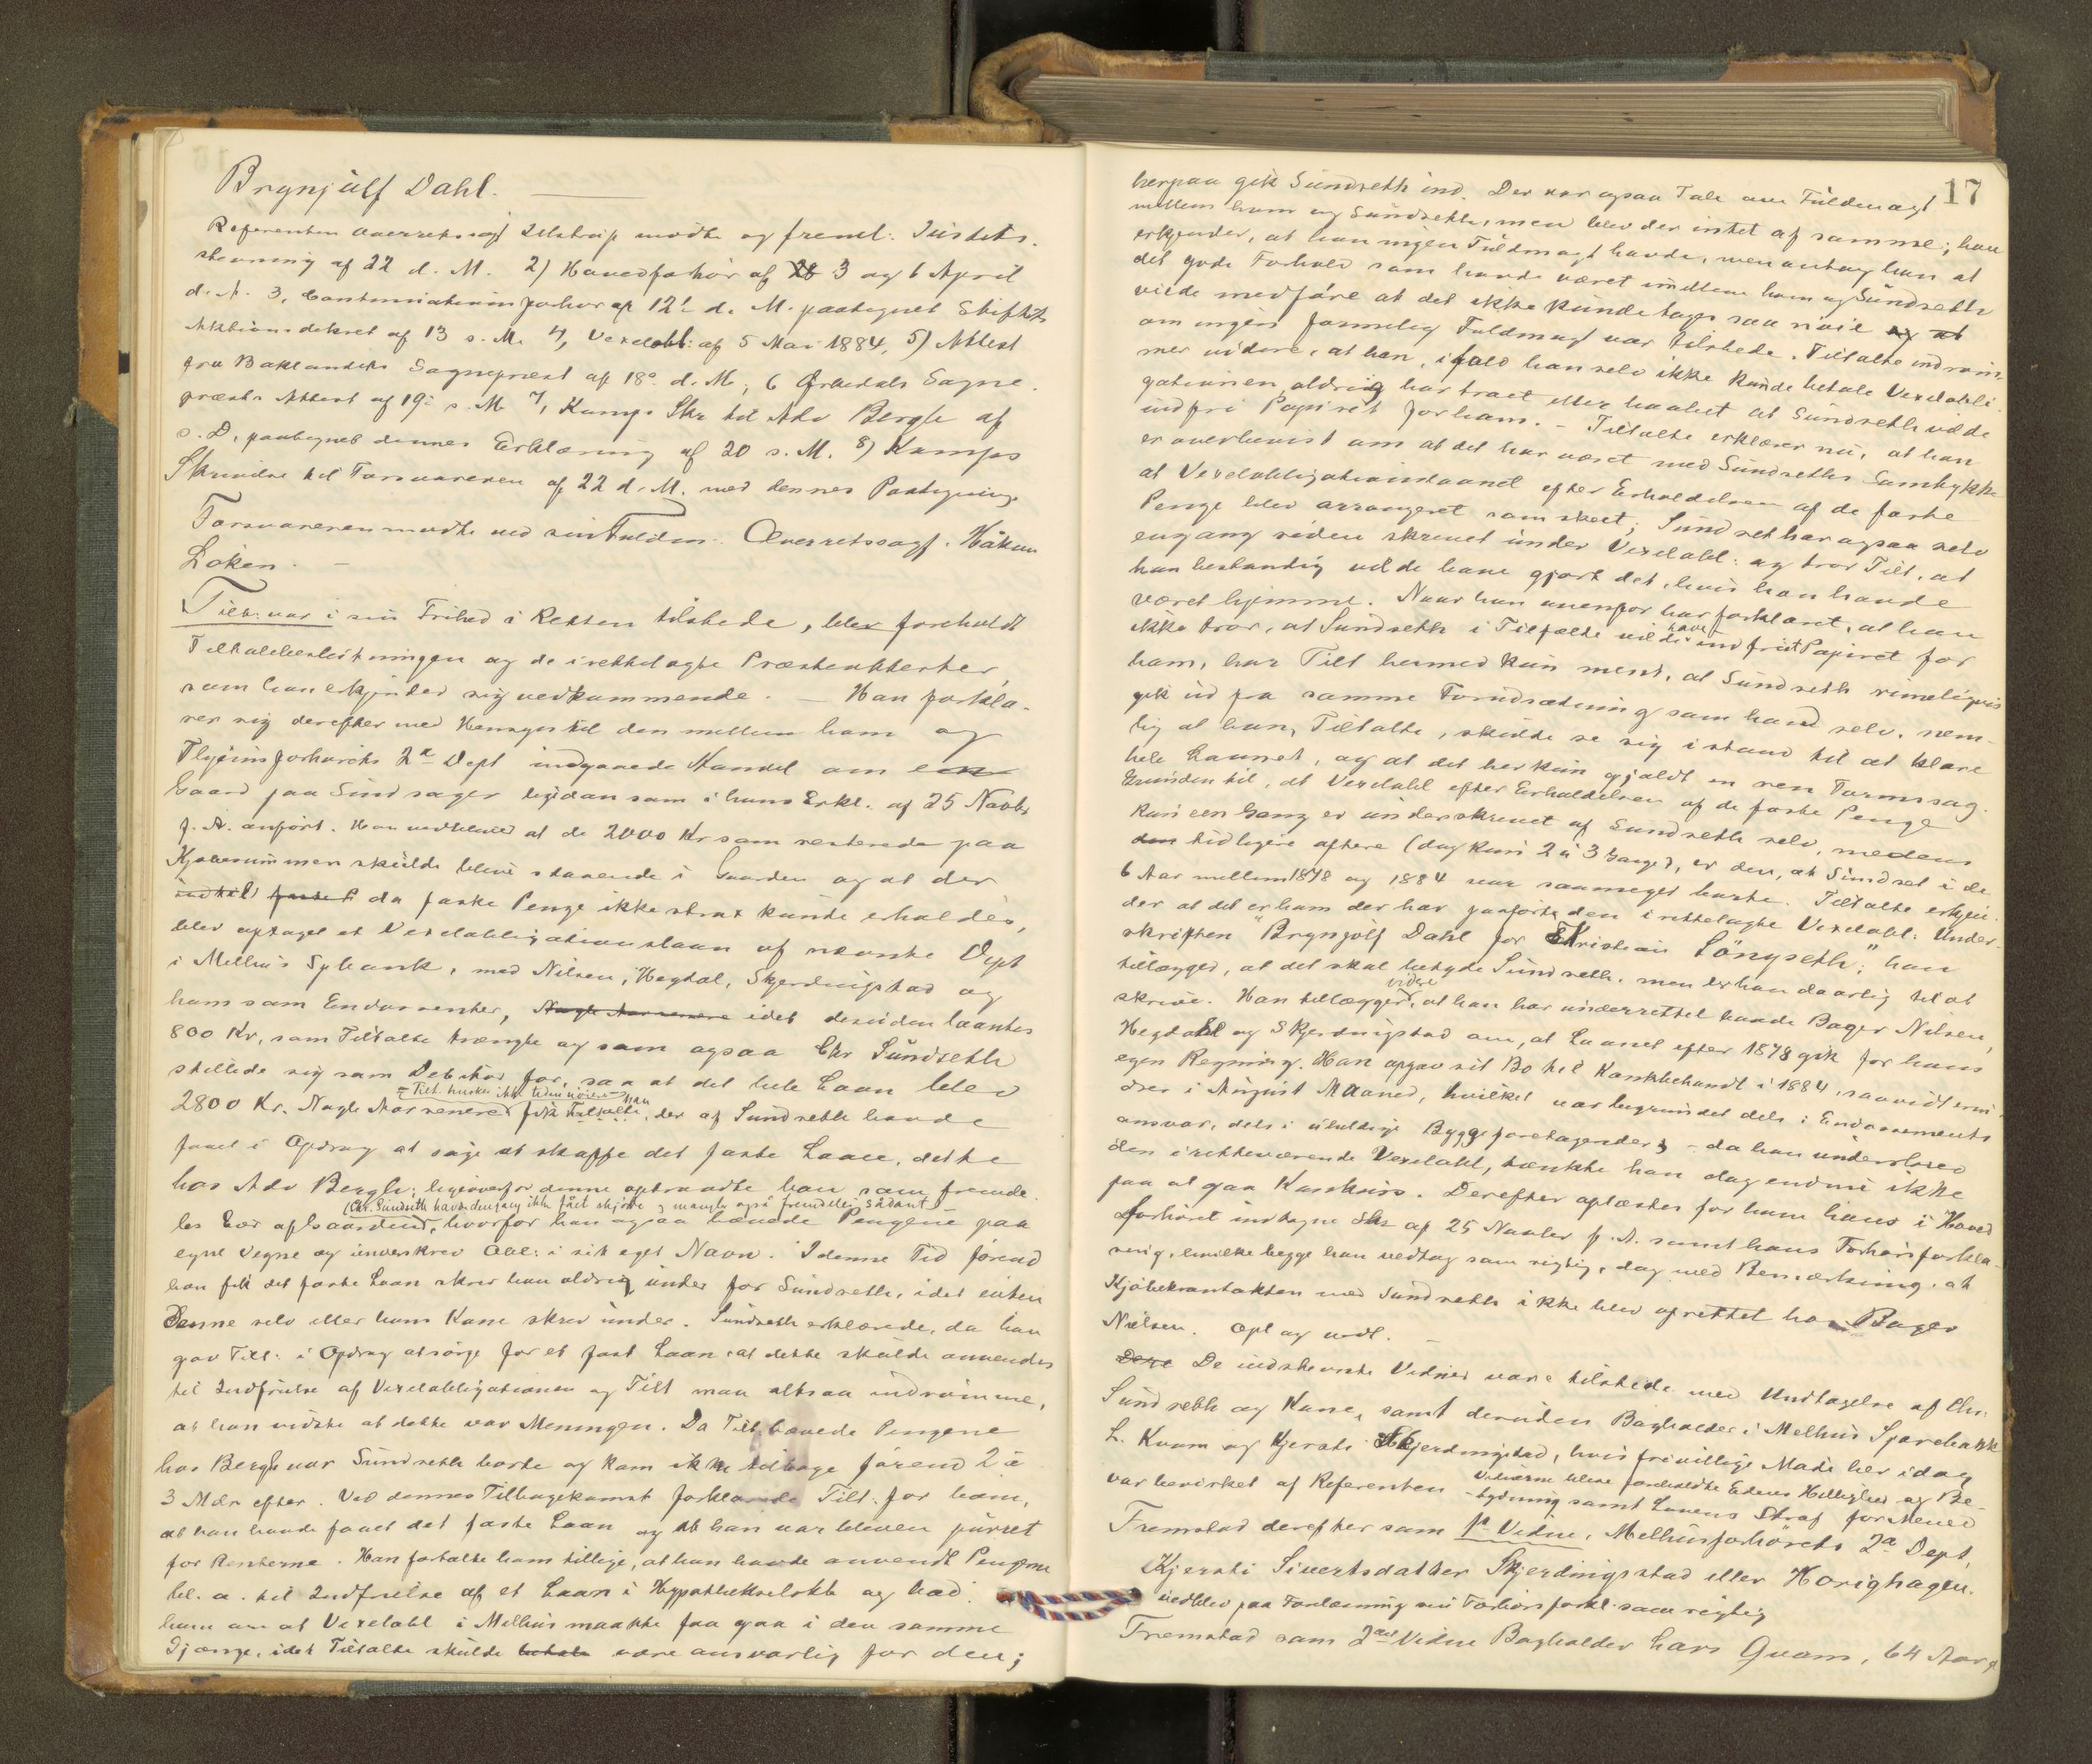 Brynjülf Dahl.
Referenten Overretssagf Zilstrup mødte og freml: Justits-
stevning af 22 d. M. 2) Hovedforhör af 3 og 6 April
d. A. 3, Continuationsforhör af 12te d. M. paategnet Stiftets
Aktionsdekret af 13 s. M. 4, Vexelobl: af 5 Mai 1884, 5) Attest
fra Baklandets Sognepræst af 18de d. M, 6 Orkedals Sogne-
præsts Attest af 19de s. M. 7, Kumps Skr til Adv Bergh af
s. D, paategnet dennes Erklæring af 20 s. M. 8) Kumps
Skrivelse til Forsvareren af 22 d. M. med dennes Paategning.
Forsvareren mødte ved sin Fuldm. Overretssagf. Håkon
Löken. –
Tilt: var i sin Frihed i Retten tilstede, blev foreholdt
Tiltalebeslutningen og de irettelagte Præsteattester,
som han erkjender sig vedkommende. – Han forkla-
rer sig derefter med Hensyn til den mellem ham og
Flyimsforhørets 2de Dept indgaaede Handel om en
Gaard paa Sindsager ligedan som i hans Erkl. af 25 Novbr
f. A. anført. Han vedblev at de 2000 Kr som resterede paa
Kjøbesummen skulde blive staaende i Gaarden og at der
indtil da faste Penge ikke strax kunde erholdes,
blev optaget et Vexelobligationslaan af nævnte Dept
i Melhus Spbank, med Nilsen, Hegdal, Skjerdingstad og
ham som Endossenter, Nogle Aar senere idet desuden laantes
800 Kr, som Tiltalte trængte og som ogsaa Chr Sündseth
stillede sig som Debitor for, saa at det hele Laan blev
– Tilt. husker ikke Tiden nöiere – han
2800 Kr. Nogle Aar senere fik Tiltalte, der af Sundseth havde
faaet i Opdrag at søge at skaffe det faste Laan, dette
hos Adv Bergh; ligeoverfor denne optraadte han som fremde-
(Chr. Sundseth havde dengang ikke fået skjöde og mangler også fremdeles sådant)
les Eier af Gaarden, hvorfor han ogsaa hævede Pengene paa
egne Vegne og underskrev Obl: i sit eget Navn. I denne Tid førend
han fik det faste Laan skrev han aldrig under for Sündseth, idet enten
Denne selv eller hans Kone skrev under. Sündseth erklærede, da han
gav Tilt: i Opdrag at sørge for et fast Laan at dette skulde anvendes
til Indfrielse af Vexelobligationen og Tilt maa altsaa indrømme,
at han vidste at dette var Meningen. Da Tilt. hævede Pengene
hos Bergh var Sündseth borte og kom ikke tilbage førend 2 à
3 Mdr efter. Ved dennes Tilbagekomst forklarede Tilt: for ham,
at han havde faaet det faste Laan og at han var bleven purret
for Renterne. Han fortalte ham tillige, at han havde anvendt Pengene
bl. a. til Indfrielse af et Laan i Hypothekselskb og bad
ham om at Vexelobl i Melhus maatte faa gaa i den samme
Gjænge, idet Tiltalte skulde betale være ansvarlig for den;
17
herpaa gik Sündseth ind. Der var ogsaa Tale om Fuldmagt
mellem ham og Sündseth, men blev der intet af samme; han
erkjender, at han ingen Fuldmagt havde, men antog han at
det gode Forhold som havde været imellem ham og Sündseth
vilde medføre at det ikke kunde tages saa nöie og at
om ingen formelig Fuldmagt var tilstede. Tiltalte indröm-
mer videre, at han, ifald han selv ikke kunde betale Vexelobli-
gationen, aldrig har troet eller haabet at Sündseth vilde
indfri Papiret for ham. – Tiltalte erklærer nu, at han
er overbevist om at det har været med Sündseths Samtykke
at Vexelobligationslaanet efter Erholdelsen af de faste
Penge blev arrangeret som skeet; Sündset har ogsaa selv
engang siden skrevet under Vexelobl: og tror Tilt. at
han bestandig vilde have gjort det, hvis han havde
været hjemme. Naar han ovenfor har forklaret, at han
ikke tror, at Sundseth i Tilfælde vilde have indfriet Papiret for
ham, har Tilt hermed kun ment, at Sündseth rimeligvis
gik ud fra samme Forudsætning som han selv, nem-
lig at han, Tiltalte, skulde se sig istand til at klare
hele Laanet, og at det her kun gjaldt en ren Formssag.
Grunden til, at Vexelobl efter Erholdelsen af de faste Penge
kun een Gang er underskrevet af Sundseth selv, medens
den tidligere oftere (dog kun 2 à 3 Gange), er den, at Sündset i de
6 Aar mellem 1878 og 1884 var saameget borte. Tiltalte erkjen-
der at det er ham der har paaført den irettelagte Vexelobl: Under-
skriften "Brynjolf Dahl for Kristian Söngseth;" han
tillægger, at det skal betyde Sündseth, men er han daarlig til at
skrive. Han tillægger videre, at han har underrettet baade Bager Nilsen,
Hegdahl og Skjerdingstad om, at Laanet efter 1878 gik for hans
egen Regning. Han opgav sit Bo til Konkbehandl i 1884, saavidt erin-
dres i August Maaned, hvilket var begrundet dels i Endossements
ansvar, dels i uheldige Byggeforetagender; – da han underskrev
den iretteværende Vexelobl, tænkte han dog endnu ikke
paa at gaa Konkurs. Derefter oplæstes for ham hans i Hoved
forhøret indtagne Skr af 25 Novbr f. A. samt hans Forhørsforkla-
ring, hvilke begge han vedtog som rigtig, dog med Bemærkning, at
Kjøbekontrakten med Sundseth ikke blev oprettet hos Bager
Nielsen. Opl og vedt. –
Dere De indstevnte Vidner vare tilstede med Undtagelse af Chr.
Sundseth og Kone, samt desuden Bogholder i Melhus Sparebank
L. Kvam og Kjersti Skjerdingstad, hvis frivillige Møde her idag
var bevirket af Referenten – Vidnerne bleve foreholdte Edens Hellighed og Be-
tydning samt Lovens Straf for Meneed
Fremstod derefter som 1ste Vidne, Melhusforhörets 2det Dept,
Kjersti Sivertsdatter Skjerdingsstad eller Horighagen.
vedblev paa Forelæsning sin Forhörsforkl. som rigtig
Fremstod som 2det Vidne Bogholder Lars Qvam, 64 Aar gl